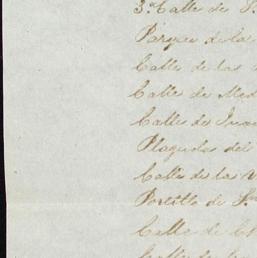 3.ª Calle de S.
Parque de la
Calle de las
Calle de Med
Calle de Juan
Plazuela del
Calle de las
Portillo de S.
Calle de